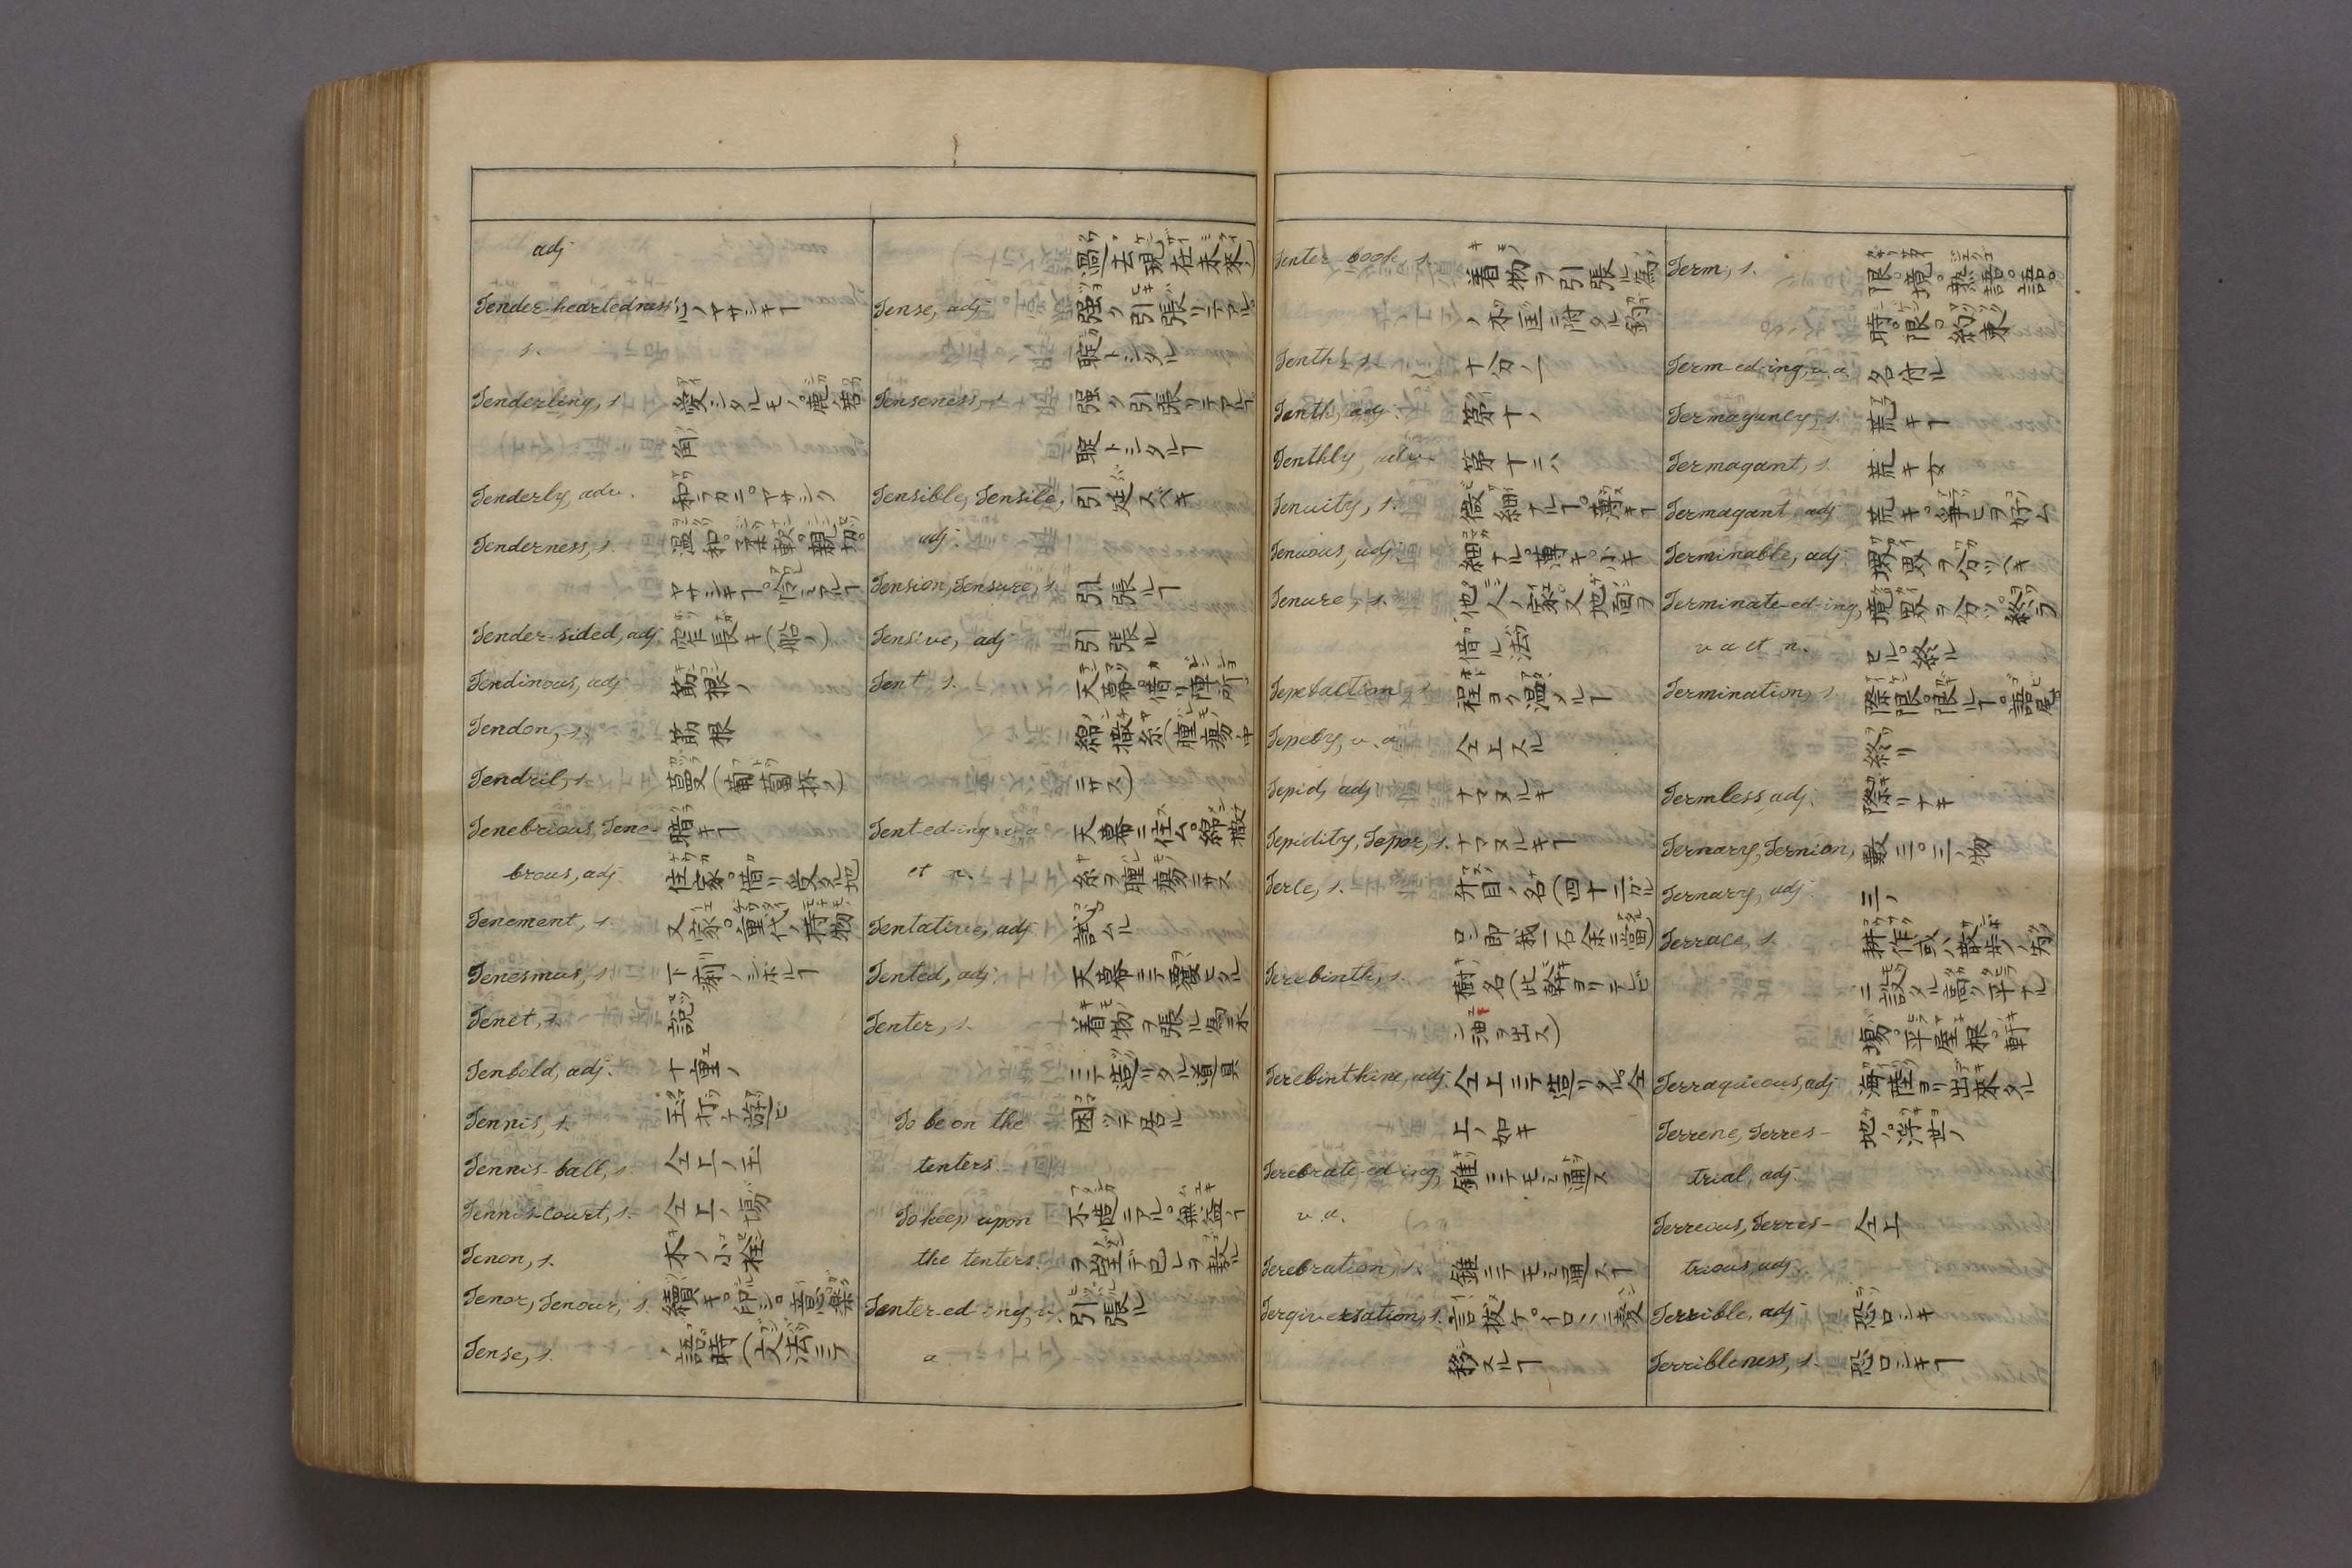 adj
Tender-heartedness, 心ノヤサシキヿ
s.
Tenderling, s. 愛シタルモノ。鹿ノ若
角
Tenderly, adv. 和ラカニ。ヤサシク
Tenderness, s. 温和。柔軟。親切。
ヤサシキヿ。
Tender-sided, adj. 長キ(船ノ)
Tendinous, adj. 筋根ノ
Tendon, s. 筋根
Tendril, s. 蔓(葡萄抔ノ)
Tenebrious, Tene- 暗キヿ
brous, adj. 住家。借リ受タル地
Tenement, s. 又家。重代ノ荷物
Tenesmus, s. 下痢ノシボルヿ
Tenet, s. 説
Tenfold, adj. 十重ノ
Tennis, s. 玉打ノ遊ビ
Tennis-ball, s. 仝上ノ玉
Tennis-court, s. 仝上ノ場
Tenon, s. 木ノ小栓
Tenor, Tenour, s. 續キ。印シ。意味。樂
Tense, s. 語時(文法ニテ
過去現在未來)
Tense, adj. 强ク引張リテアル。
聢トシタル
Tenseness, s. 强ク引張リテアルヿ
聢トシタルヿ
Tensible, Tensile, 引延スベキ
adj.
Tension, Tensure, s. 引張ルヿ
Tensive, adj. 引張ル
Tent, s. 天幕。借リ陣所
綿撒糸(腫瘍ノ中
ニサス)
Tent-ed-ing, v.a. 天幕ニ住ム。綿撒
et n. 糸ヲ腫瘍ニサス
Tentative, adj. 試ムル
Tented, adj. 天幕ニテ覆ヒタル
Tenter, s. 着物ヲ張ル爲ニ木
ニテ造リタル道具
To be on the 困ツテ居ル
tenters.
To keep upon 不慥ニアル。無益ノヿ
the tenters. ヲ望デ己レヲ
Tenter-ed-ing, v. 引張ル
a.
Tenter-hook, s. 着物ヲ引張ル爲
ノ木匡ニ附タル釣
Tenth, s. 十分ノ一
Tenth, adj. 第十ノ
Tenthly, adv. 第十ニハ
Tenuity, s. 微細ナルヿ。薄キヿ
Tenuous, adj. 細ナル。薄キ。小キ
Tenure, s. 他人ノ家又地面ヲ
借ル法
Tepefaction, s. 程ヨク温メルヿ
Tepefy, v.a. 仝上スル
Tepid, adj. ナマヌルキ
Tepidity, Tepor, s. ナマヌルキヿ
Terce, s. 升目ノ名(四十二ガル
ロン即我一石余ニ當ル)
Terebinth, s. 樹名(此幹ヨリテレビ
ン油ヲ出ス)
Terebinthine, adj. 仝上ニテ造リタル。仝
上ノ如キ
Terebrate-ed-ing, 錐ニテモミ通ス
v.a.
Terebration, s. 錐ニテモミ通スヿ
Tergiversation, s. 言抜ケ。イロ〳〵ニ変
移スルヿ
Term, s. 限。境。熟語。語。
時。限。約束
Term-ed-ing, v.a. 名付ル
Termagancy, s. 荒キヿ
Termagant, s. 荒キ女
Termagant, adj. 荒キ。爭ヒヲ好ム
Terminable, adj. 境界ヲ分ツベキ
Terminate-ed-ing, 境界ヲ分ツ。終ラ
v a et n. セル。終ル
Termination, s. 際限。限ルヿ。語尾。
終リ
Termless, adj. 際リナキ
Ternary, Ternion, 數ノ三。三ノ物
Ternary, adj. 三ノ
Terrace, s. 耕作或ハ散歩ノ爲
ニ設タル高ク平ナル
塲。平屋根。軒
Terraqueous, adj. 海陸ヨリ出來タル
Terrene, Terres- 地ノ。浮世ノ
trial, adj.
Terreous, Terres- 仝上
trious, adj.
Terrible, adj. 恐ロシキ
Terribleness, s. 恐ロシキヿ